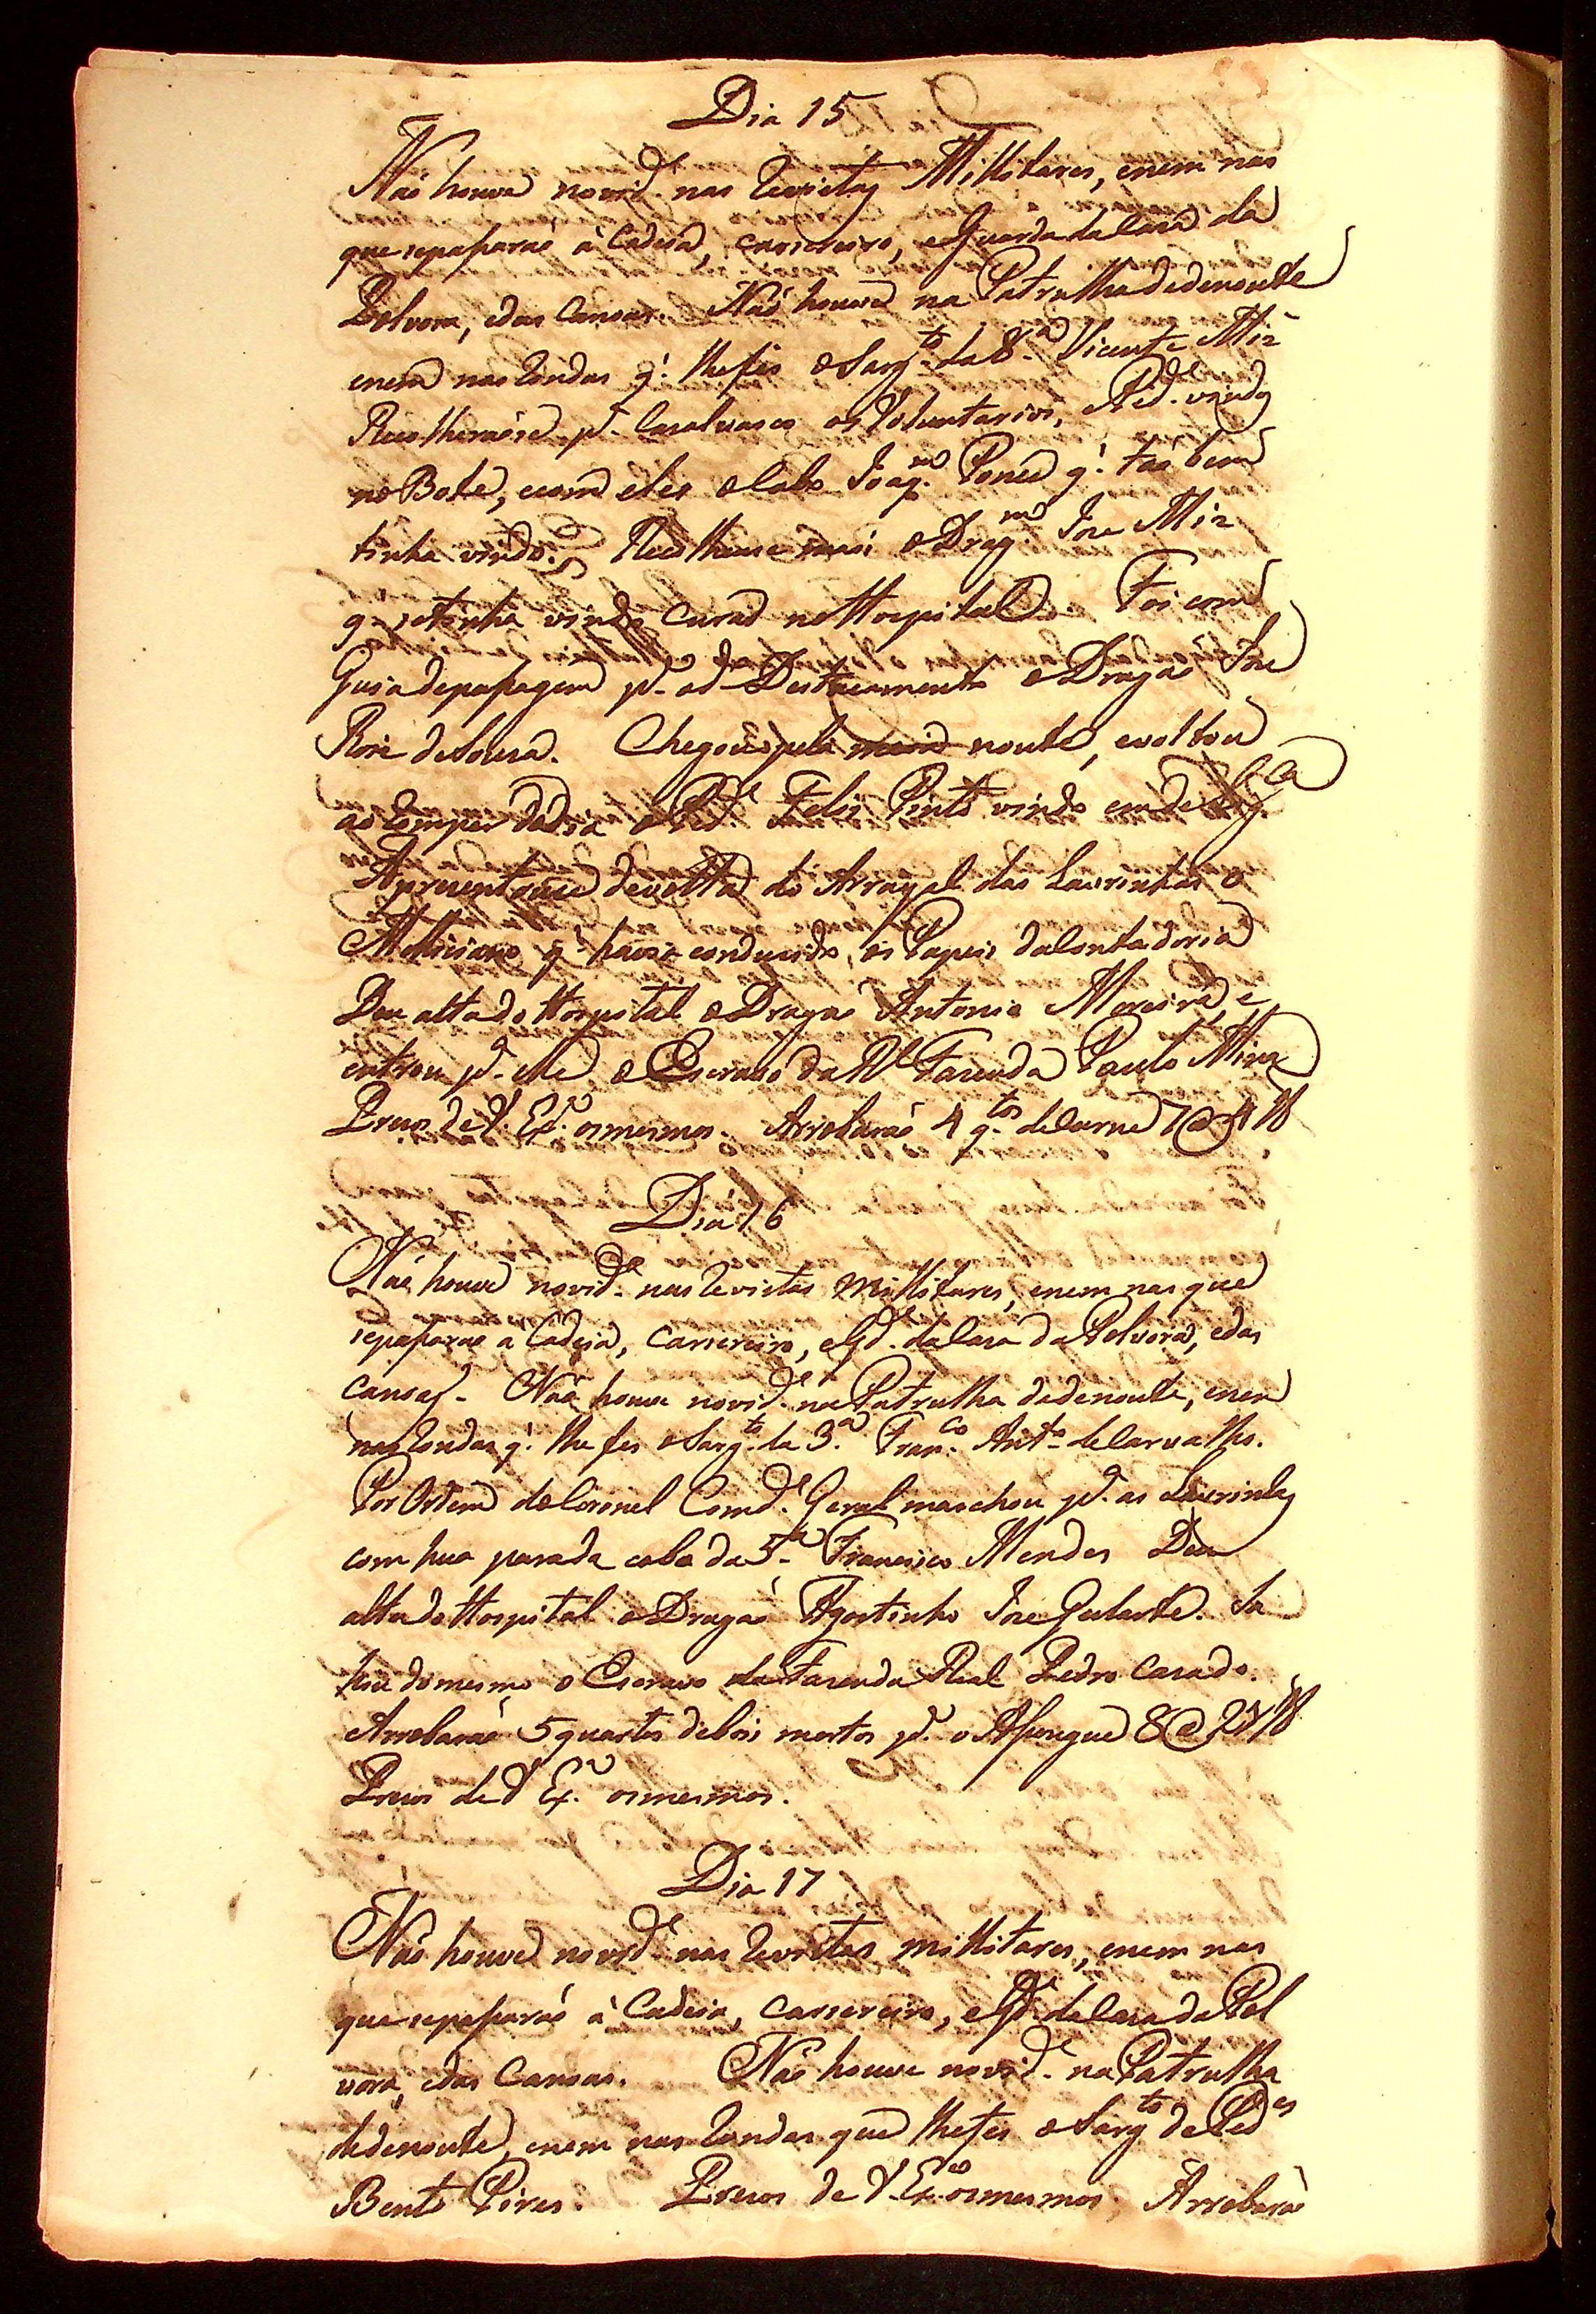 Dia 15
Naõ houve novid.e nas Revistas Millitares, enem nas
que sepaſsaraõ á Cadeia, Carcereiro, eGuarda daCasa da
Polvora, edas Canoas. Naõ houve na Patrulha dedenoute
enem nas Rondas q' lhefes oSarg.to da8.a Vicente Miz
Recolheraõse p.a Casalvasco os Voluntarios, ePed. vindos
noBote, ecom eles oCabo Joaq.m q' taõ bem
tinha vindo. Recolheuse mais oDrag.m Joze Miz
q. setinha vindo Curar noHospital. Foi com
Guia depaſsagem p.a od.o Destacamento oDragaõ Joze
Roiz deSousa. Chegou pela noute, evoltou
ao romper dodia oPed.e Felis Pinto vindo em delig.ca
Aprezentouse devolta do Arrayal das Lavrinhas o
Milliciano q' havia conduzido os Papeis daContadoria
Deu alta do Hospital oDragaõ Antonio Moreira, e
entrou p.a elle oEscravo daR.l Fazenda Paulo Mina
Prezos deV. Ex.a osmesmos. Arrobaraõ 4 q.tos deCarne 7@4 lb
Dia 16
Naõ houve novid.e nas Revistas Millitares, enem nas que
sepaſsaraõ a Cadeia, Carcereiro, eGd.a daCasa daPolvora, edas
canoas. Naõ houve novid.e naPatrulha dedenoute, enem
nas Rondas q' lhe fes oSarg.to da 3.a Fran.co Ant.o deCarvalho.
Por Ordem doCoronel Com.de Geral marchou p.a as Lavrinhas
com hua parada cabo da 5.a Francisco Mendes Deu
alta doHospital oDragaõ Agostinho Joze Gularte. Sa
hiu domesmo o Escravo daFazenda Real Pedro Casado.
Arrobaraõ 5 quartos deboi mortos p.a oAſsougue 8@ 24 lb
Prezos deV Ex.a osmesmos.
Dia 17
Naõ houve novid.e nas Revistas millitares, enem nas
que sepaſsaraõ á Cadeia, Carcereiro, eGd.a daCasa daPol
vora, edas Canoas. Naõ houve novid.e naPatrulha
dedenoute, enem nas Rondas que lhefes oSarg.to dePed.es
Bento Pires. Prezos de V. Ex.a osmesmos. Arrobaraõ